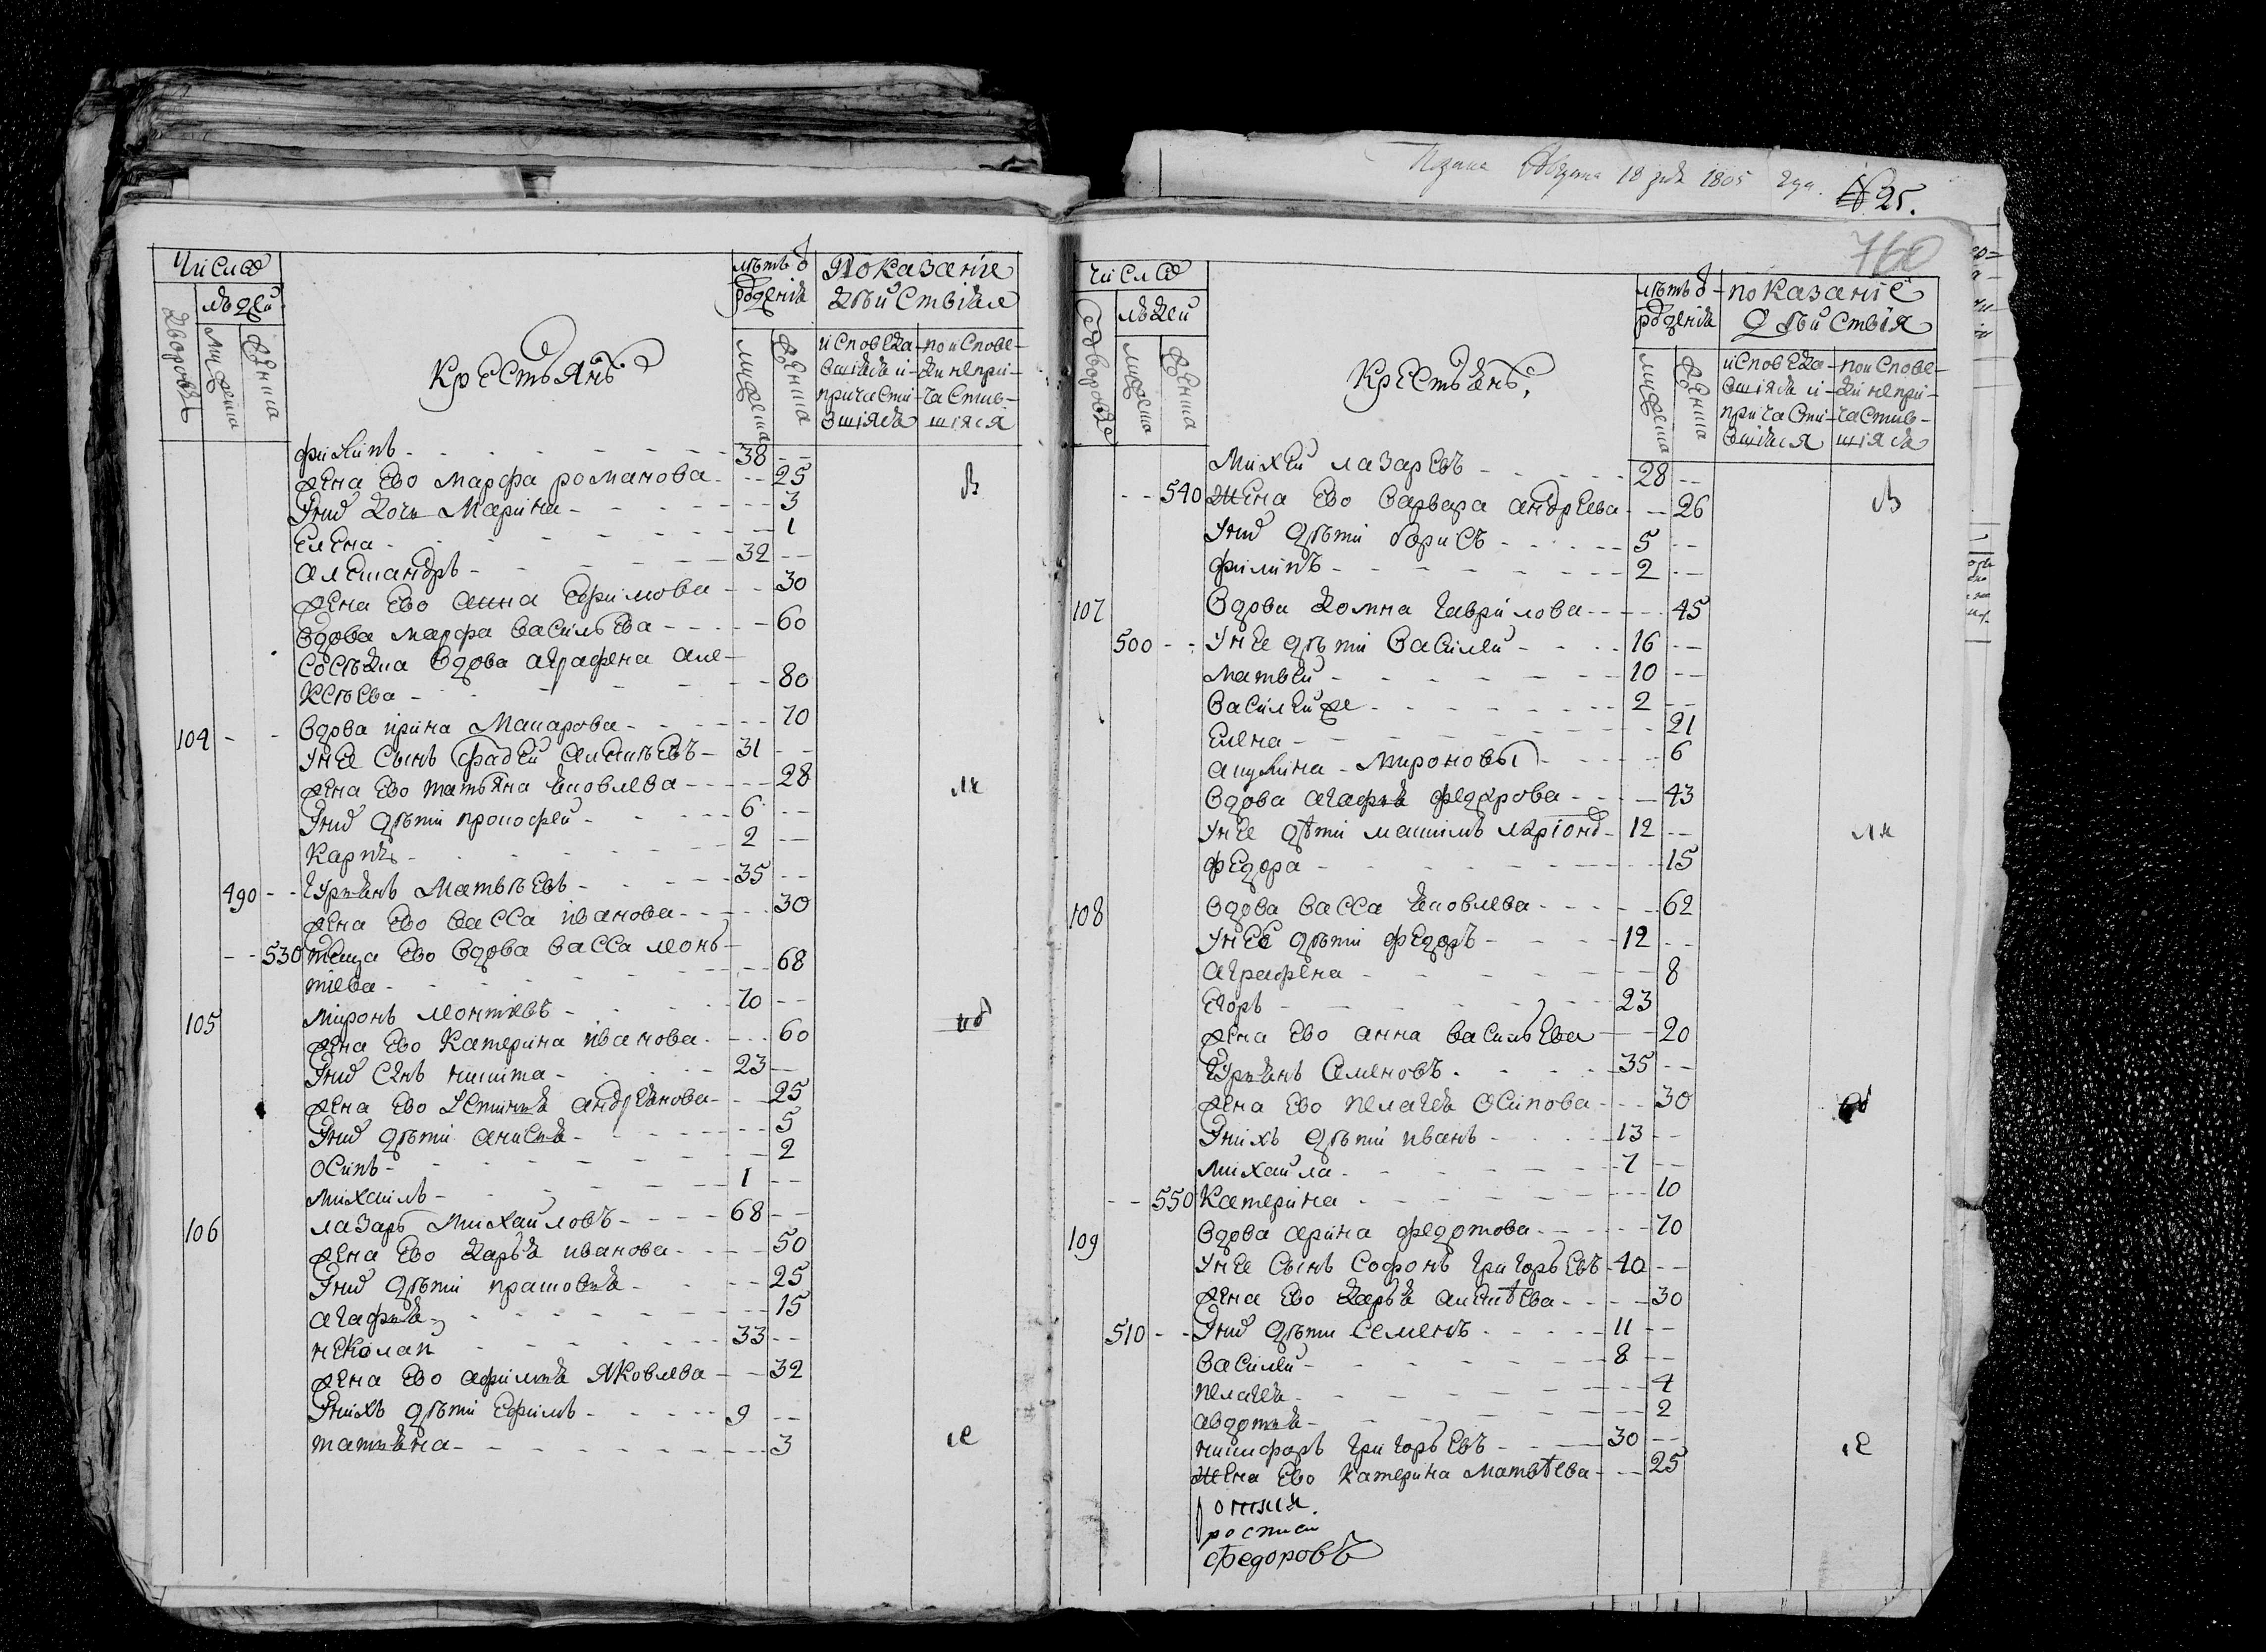 Число
людей
дворовъ
мужеска
женска
Крестьянъ
лѣтъ о
рожденія
мужеска
женска
Показаніе
дѣйствія
исповеда-
вшіяся и
причасти-
вшіяся
по испове-
ди непри-
частив-
шіяся
филипъ 38
жена Ево марфа романова 25
Унихъ дочь Марина 3
Елена 1
александръ 32
жена Ево анна Ефимова 30
вдова марфа васильева 60
сосѣдка вдова аграфена але-
ксѣева 80
104 вдова ирина Макарова 70
унее сынъ фадей 31
жена Ево татьяна яковлева 28
Унихъ дѣти прокофей 6
Карпъ 2
490 гурьянъ Матвѣевъ 35
жена Ево васса иванова 30
530 теща Ево вдова васса леонь-
тіева 68
105 миронъ леонтіевъ 70
жена Ево катерина иванова 60
Унихъ сынъ никита 23
жена Ево устинья андреянова 25
Унихъ дѣти анисья 5
осипъ 2
михаилъ 1
106 лазарь михайловъ 68
жена Ево дарья иванова 50
Унихъ дѣти прасковья 25
агафья 15
николай 33
жена Ево афимья яковлева 32
Унихъ дѣти Ефимъ 9
татьяна 3
№ 25.
760
число
дворовъ
людей
мужеска
женска
Крестьянъ
лѣтъ о
рожденія
мужеска
женска
показаніе
дѣйствія
исповеда-
вшіяся и
причасти-
вшіяся
по испове-
ди непри-
частив-
шіяся
михей лазаревъ 28
540 жена Ево варвара андреева 26
Унихъ дѣти борисъ 5
филипъ 2
107 вдова домна гаврилова 45
500 унее дѣти василей 16
матвей 10
василейже 2
Елена 21
акулина мироновы 6
вдова агафья федорова 43
унее дѣти максимъ 12
федора 15
108 вдова васса яковлева 62
унее дѣти федоръ 12
аграфена 8
Егоръ 23
жена Ево анна васильева 20
гурьянъ семеновъ 35
жена Ево пелагея осипова 30
Унихъ дѣти иванъ 13
михайла 7
550 катерина 10
109 вдова арина федотова 70
унее сынъ софонъ григорьевъ 40
жена Ево дарья 30
510 Унихъ дѣти семенъ 11
василей 8
пелагея 4
авдотья 2
никифоръ григорьевъ 30
жена Ево катерина матвѣева 25
росписи
федоровъ